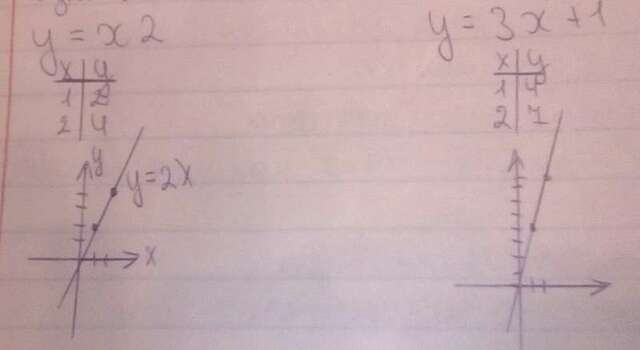 y = x 2
x | y
1 | 2
2 | 4
y
y=2x
x
y = 3x+1
x | y
1 | 4
2 | 7